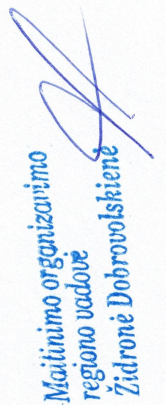 Maitinimo organizavimo
regiono vadovė
Židronė Dobrovolskienė